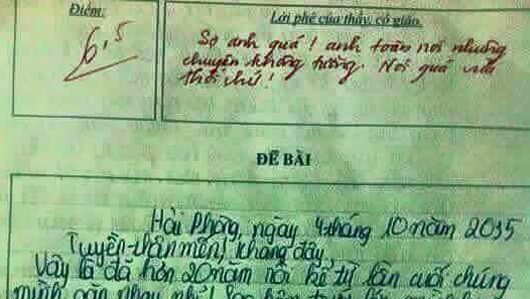 Điểm:
6,5
Lời phê của thầy, cô giáo
Sợ anh quá! anh toàn nói những
chuyện không tưởng. Nói quá vừa
thôi chứ!
ĐỀ BÀI
Hải Phòng, ngày 4 tháng 10 năm 2035
Tuyền thân mến,
Vậy là đã hơn 20 năm nói kể từ lần cuối chúng
mình gặp nhau nhỉ!